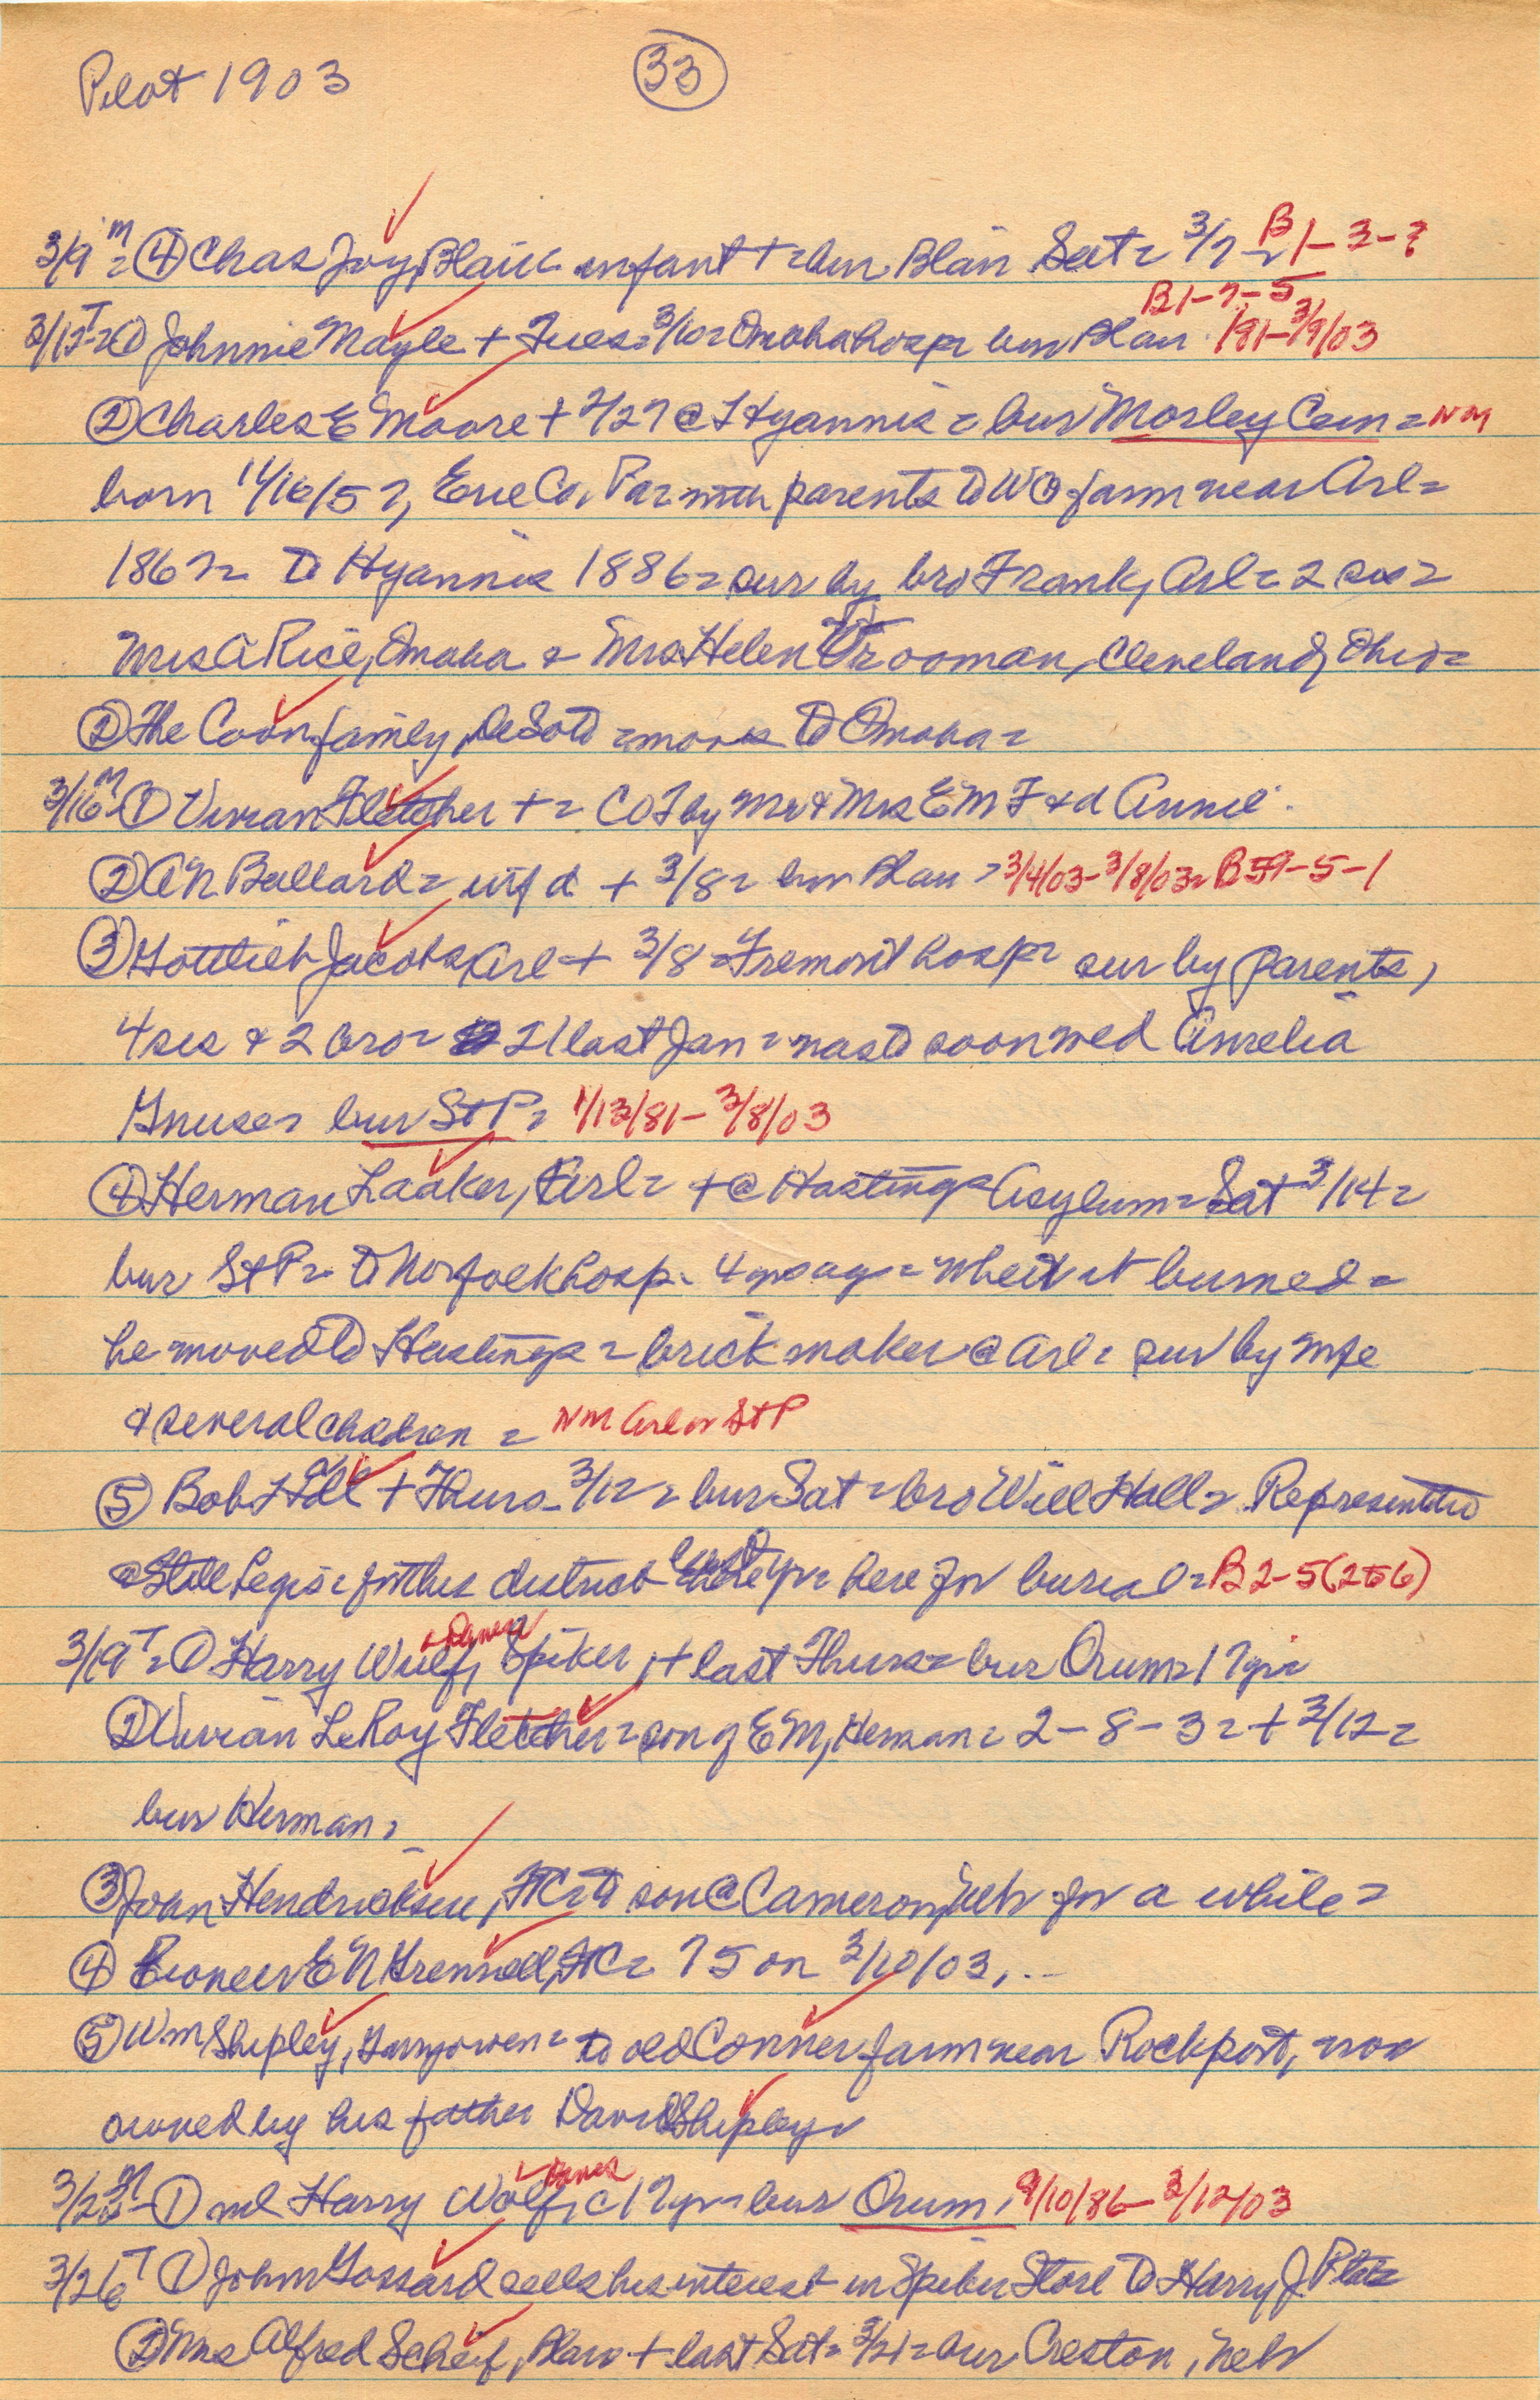 Pilot 1903 33
3/9 M = ④ Chas Joy, Blair = infant + = bur Blair Sat = 3/7 = B1-3-?
B1-7-5
3/12 T = ① Johnnie Nagle + Tues = 3/10 = Omaha hosp = bur Blair 1/81-3/9/03
② Charles E Moore + 2/27 @ Hyannis = bur Morley Cem = NM
born 11/16/57, Erie Co, Pa = with parents to WC farm near Arl =
1867 = to Hyannis 1886 = sur by bro Frank, Arl = 2 sis =
Mrs A Rice, Omaha & Mrs Helen Vrooman, Cleveland, Ohio =
② The Coon family, DeSoto = move to Omaha =
3/16 M ① Vivian Fletcher + = COT by Mr & Mrs E M F & d Annie
② A N Ballard = inf d + 3/8 = bur Blair = 3/4/03-3/8/03 = B59-5-1
③ Gottlieb Jacobs, Arl + 3/8 = Fremont hosp = sur by parents,
4 sis & 2 bro = 21 last Jan = was to soon wed Amelia
Gnuse = bur St P = 1/13/81-3/8/03
④ Herman Laaker, Arl = + @ Hastings Asylum = Sat 3/14 =
bur St P = to Norfolk hosp = 4 yrs ago = when it burned =
he moved to Hastings = brick maker @ Arl = sur by wife
& several children = NM Arl or St P
⑤ Bob Hall + Thurs 3/12 = bur Sat = bro Will Hall = Representative
@ State Legis = for this district = here for burial = B2-5 (256)
3/19 T = ① Harry Wulf, Spiker, + last Thurs = bur Orum = 17 yr =
② Vivian LeRoy Fletcher = son of E M, Herman = 2-8-3 = + 3/12 =
bur Herman =
③ John Hendricksen, FC = to son @ Cameron, Neb for a while =
④ Pioneer E N Grennell, FC = 75 on 3/10/03, ..
⑤ Wm Shipley, Garryowen = to old Conner farm near Rockport, now
owned by his father David Shipley =
3/23 M - ① ml Harry Wolf, c 17 yr = bur Orum, 9/10/86-3/12/03
3/26 T ① John Gossard sells his interest in Spiker Store to Harry J Platz
② Mrs Alfred Scheif, Blair + last Sat = 3/21 = bur Creston, Neb